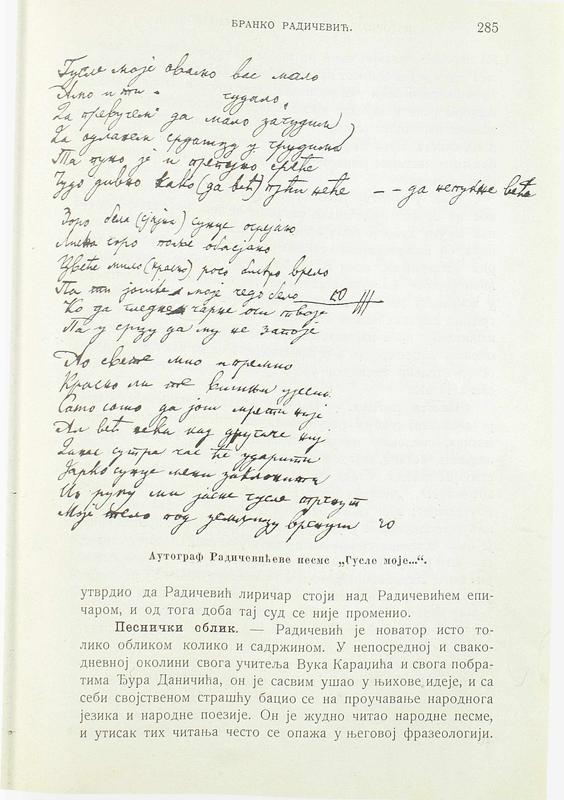 БРАНКО РАДИЧЕВИЋ.
285
Гусле моје овамо вас мало
Амо и ти чудало
За превучем да мало зачудим
За одланем срдашцу у грудима
Та пуно је и препуно среће
Чудо дивно како (да већ) пући неће — — да не
Зоро бела (сјајна) сунце огрејано
горо поље обасјано
Цвеће мило (красно) росо бисер врело
Па ти јоште моје чедо бело 20
Ко да гледне чарне очи твоје
Па у срцу да му не запоје
Ао свете мио и премио
Красно ли те
Само само да још мрети није
Ал већ нека кад другаче није
Занас сутра час ће ударити
Јарко сунце мени заклонити
Из руку ми јасне гусле тргнут
Моје тело под земљицу вргнути 20
Аутограф Радичевићеве песме „Гусле моје...“.
утврдио да Радичевић лиричар стоји над Радичевићем епи-
чаром, и од тога доба тај суд се није променио.
Песнички облик. — Радичевић је новатор исто то-
лико обликом колико и садржином. У непосредној и свако-
дневној околини свога учитеља Вука Караџића и свога побра-
тима Ђура Даничића, он је сасвим ушао у њихове идеје, и са
себи својственом страшћу бацио се на проучавање народнога
језика и народне поезије. Он је жудно читао народне песме,
и утисак тих читања често се опажа у његовој фразеологији.